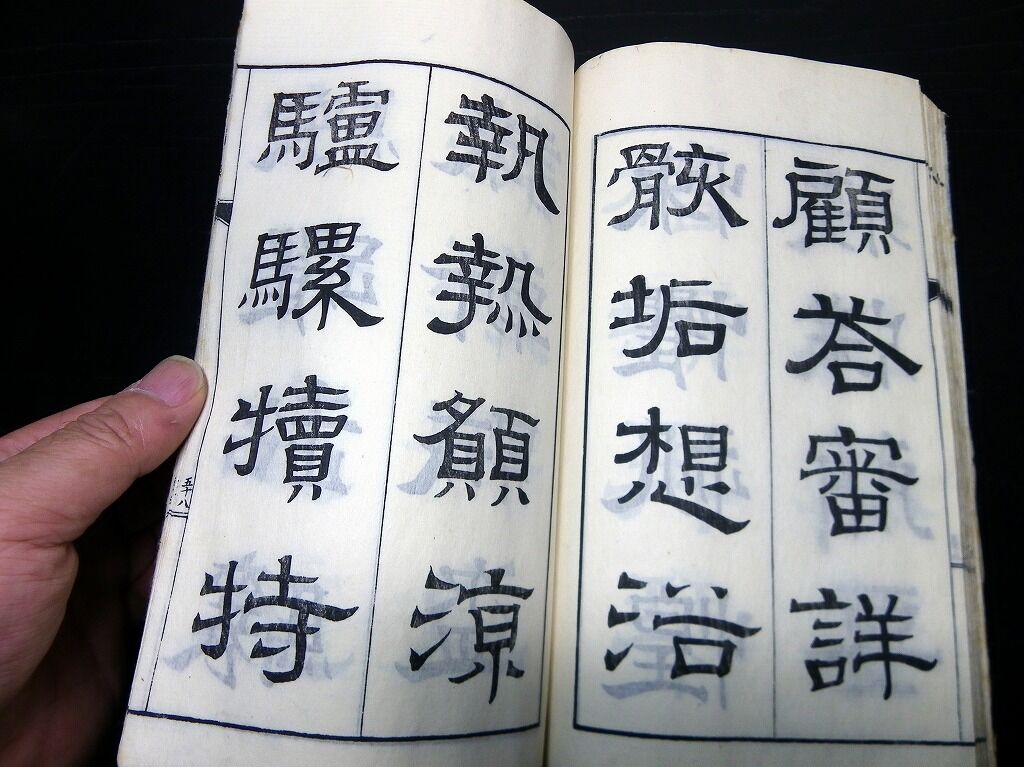 顧荅審詳
骸垢想浴
執熱願涼
驢騾犢特
五十八